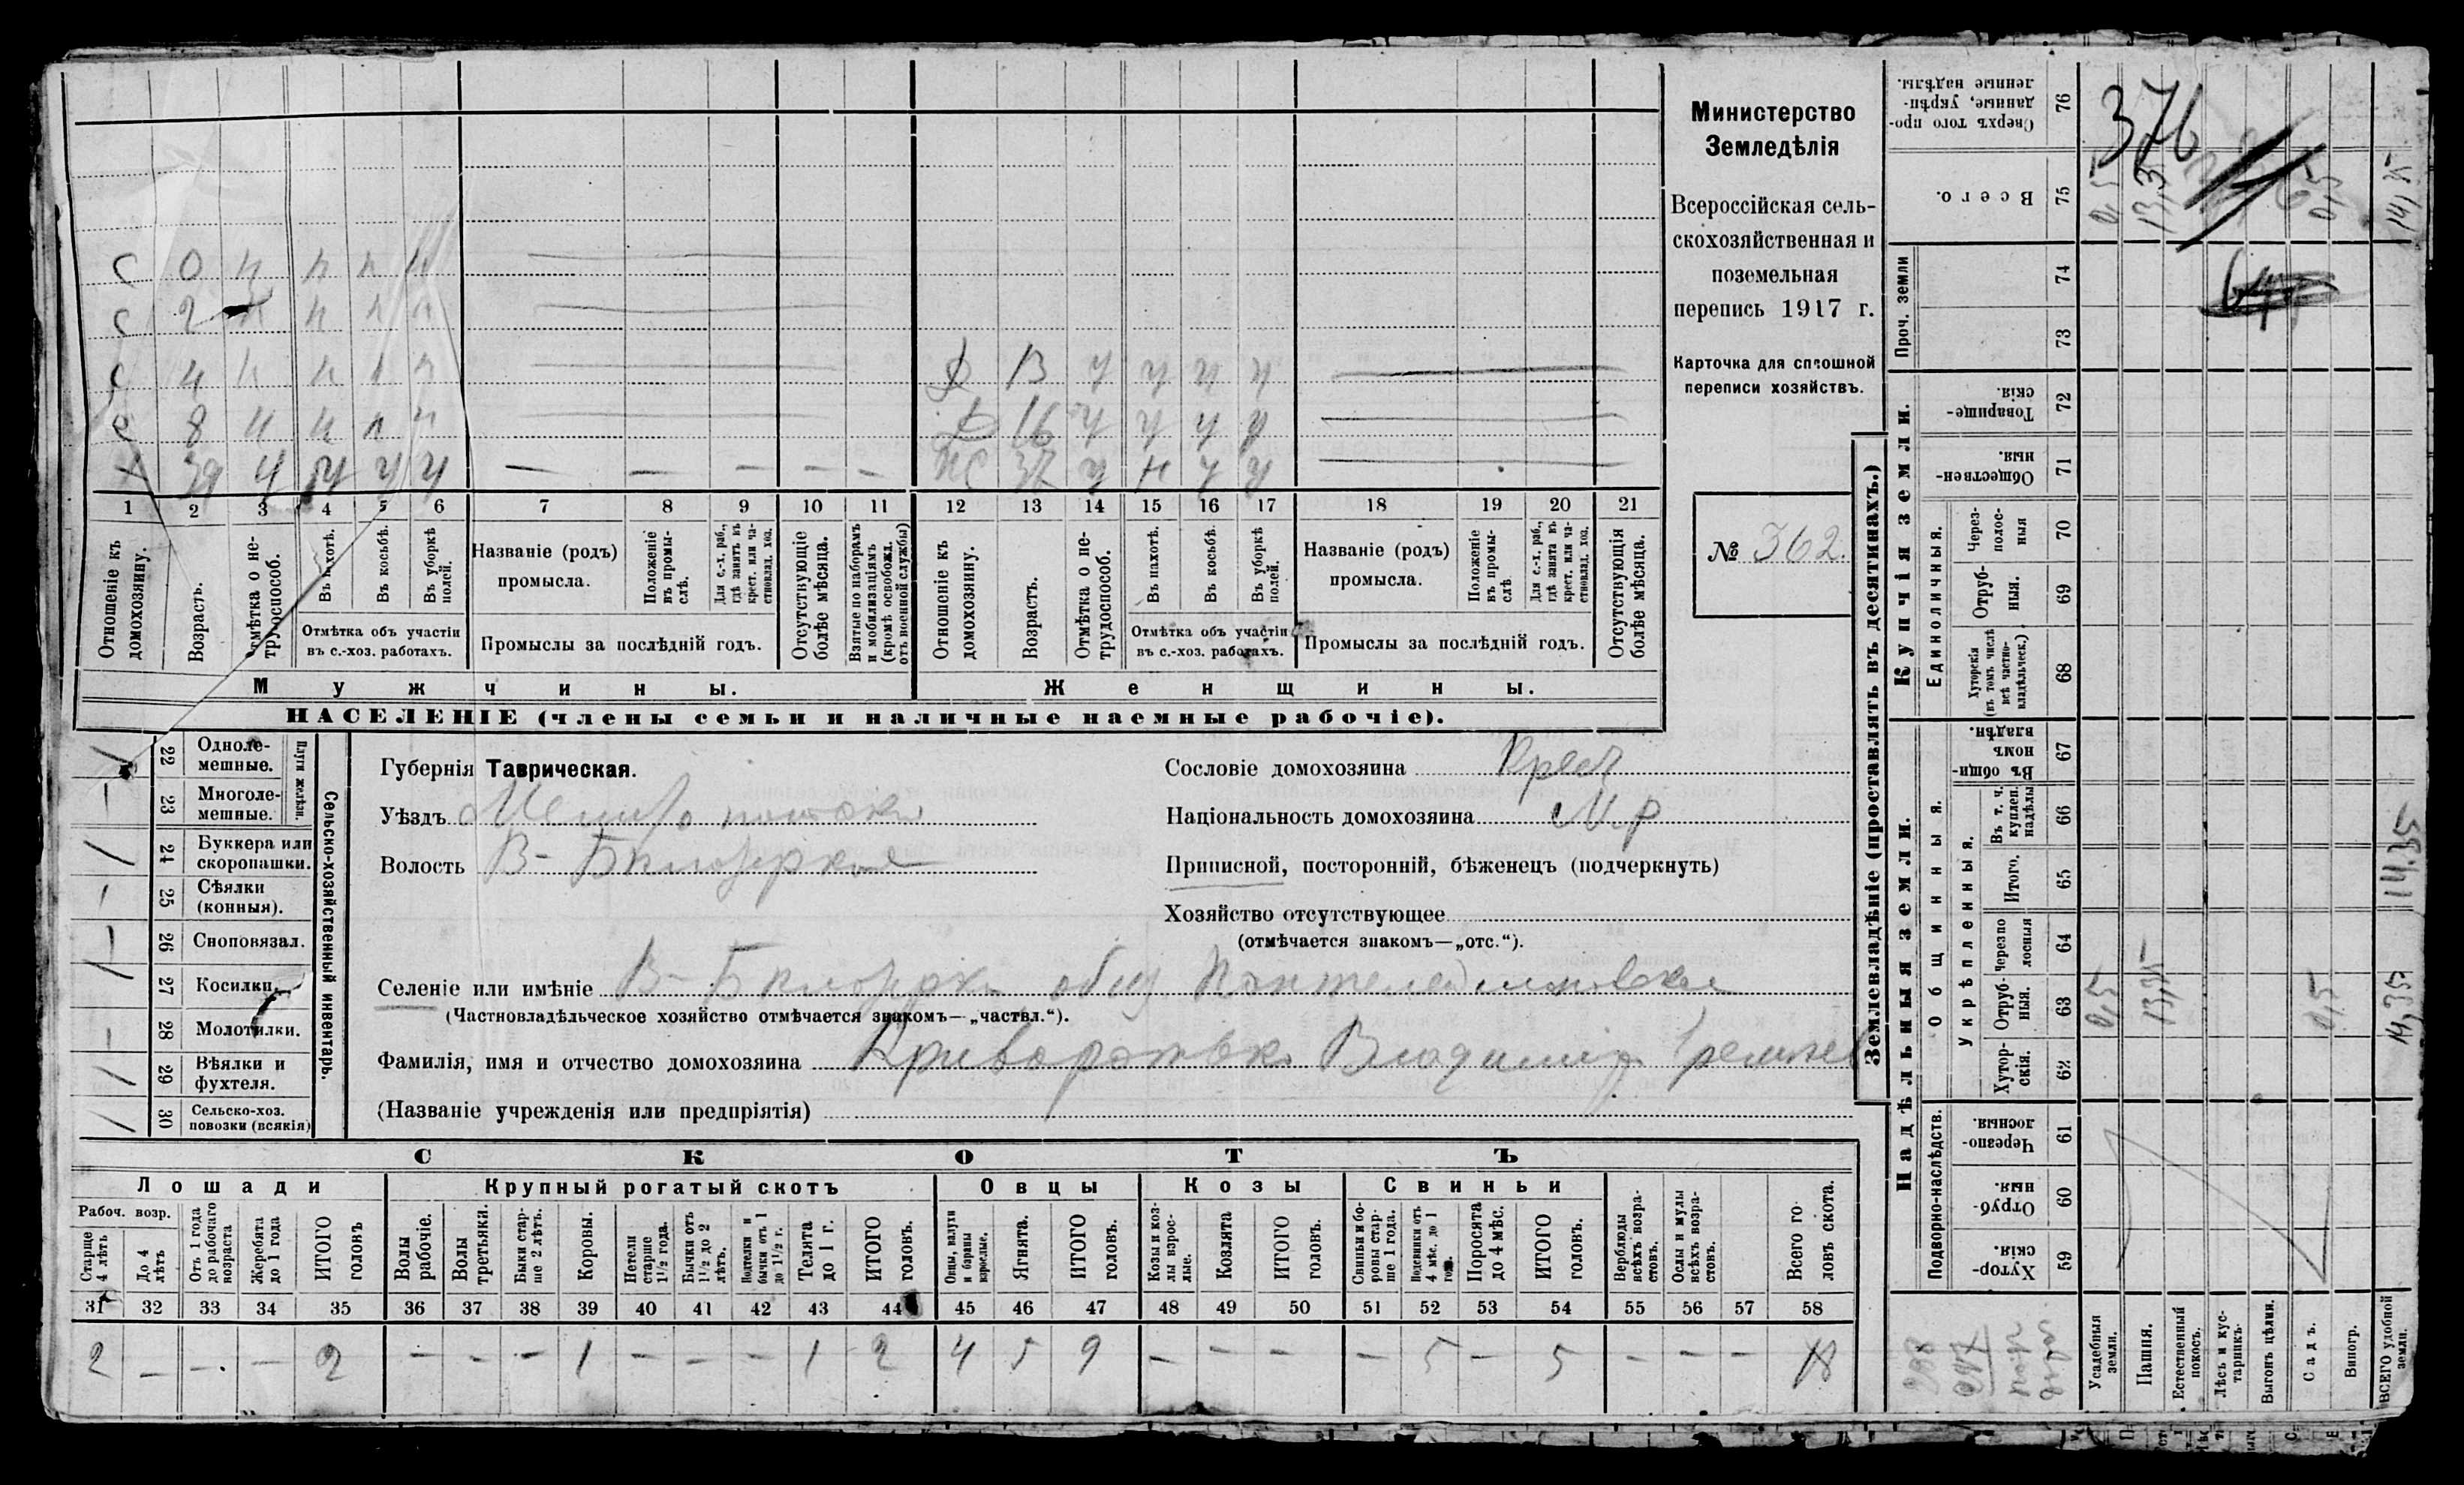 Министерство
Земледѣлія
Всероссійская сель-
скохозяйственная и
поземельная
перепись 1917 г.
Карточка для сплошной
переписи хозяйствъ.
№ 362.
376
С 0 н н н н
С 2 н н н н
С 4 н н н н Д 13 ч ч ч ч
С 8 н н н н Д 16 ч ч ч ч
Х 39 ч ч ч ч — — — — — ЖС 37 ч н ч ч
1 2 3 4 5 6 7 8 9 10 11 12 13 14 15 16 17 18 19 20 21
Отношеніе къ домохозяину.
Возрасть.
Отмѣтка о не-трудоспособ.
Въ пахотѣ.
Въ косьбѣ.
Въ уборкѣ полей.
Отмѣтка объ участіи въ с.-хоз. работахъ.
Названіе (родъ) промысла.
Положеніе въ промы-слѣ.
Для с.-х. раб., гдѣ занятъ въ крест. или ча-стновлад. хоз.
Промыслы за послѣдній годъ.
Отсутствующіе болѣе мѣсяца.
Взятые по наборамъ и мобилизаціямъ (кромѣ освобожд. отъ военной службы)
Отношеніе къ домохозяину.
Возрастъ.
Отмѣтка о не-трудоспособ.
Въ пахотѣ.
Въ косьбѣ.
Въ уборкѣ полей.
Отмѣтка объ участіи въ с.-хоз. работахъ.
Названіе (родъ) промысла.
Положеніе въ промы-слѣ
Для с.-х. раб., гдѣ занята въ крест. или ча-стновлад. хоз.
Промыслы за послѣдній годъ.
Отсутствующія болѣе мѣсяца.
Мужчины.
Женщины.
НАСЕЛЕНІЕ (члены семьи и наличные наемные рабочіе).
Сельско-хозяйственный инвентарь.
Плуги желѣзн.
22 Одноле-мешные.
23 Многоле-мешные.
24 Буккера или скоропашки.
25 Сѣялки (конныя).
26 Сноповязал.
27 Косилки.
28 Молотилки.
29 Вѣялки и фухтеля.
30 Сельско-хоз. повозки (всякія)
Губернія Таврическая.
Уѣздъ Мелитопольскій
Волость В-Бѣлозерская
Сословіе домохозяина Крест
Національность домохозяина М.р
Приписной, посторонній, бѣженецъ (подчеркнуть)
Хозяйство отсутствующее
(отмѣчается знакомъ—„отс.“).
Селеніе или имѣніе В-Бѣлозерка общ Пантелеймоновское
(Частновладѣльческое хозяйство отмѣчается знакомъ—„частвл.“).
Фамилія, имя и отчество домохозяина Криворотько Владимир
(Названіе учрежденія или предпріятія)
СКОТЪ
Лошади
Крупный рогатый скотъ
Овцы
Козы
Свиньи
Рабоч. возр.
Старше 4 лѣтъ
До 4 лѣтъ
Отъ 1 года до рабочаго возраста
Жеребята до 1 года
ИТОГО головъ
Волы рабочіе.
Волы третьяки.
Быки стар-ше 2 лѣтъ.
Коровы.
Нетели старше 1½ года.
Бычки отъ 1½ до 2 лѣтъ.
Подтелки и бычки отъ 1 до 1½ г.
Телята до 1 г.
ИТОГО головъ.
Овцы, валухи и бараны взрослые.
Ягнята.
ИТОГО головъ.
Козы и коз-лы взрос-лые.
Козлята
ИТОГО головъ.
Свиньи и бо-ровы стар-ше 1 года.
Подсвинки отъ 4 мѣс. до 1 года.
Поросята до 4 мѣс.
ИТОГО головъ.
Верблюды всѣхъ возра-стовъ.
Ослы и мулы всѣхъ возра-стовъ.
Всего го-ловъ скота.
31 32 33 34 35 36 37 38 39 40 41 42 43 44 45 46 47 48 49 50 51 52 53 54 55 56 57 58
2 — — — 2 — — — 1 — — — 1 2 4 5 9 — — — — 5 — 5 — — — 18
Землевладѣніе (проставлять въ десятинахъ.)
Надѣльныя земли.
Купчія земли.
Проч. земли
Подворно-наслѣдств.
Общинныя.
Укрѣпленныя.
Единоличныя.
59 Хутор-скія.
60 Отруб-ныя.
61 Черезпо-лосныя.
62 Хутор-скія.
63 Отруб-ныя.
64 Черезпо-лосныя
65 Итого.
66 Въ т. ч. куплен. надѣлы
67 Въ общин-номъ владѣн.
68 Хуторскія (въ томъ числѣ всѣ частно-владѣльческ.)
69 Отруб-ныя.
70 Через-полос-ныя
71 Обществен-ныя.
72 Товарище-скія.
73
74
75 Всего.
76 Сверхъ того про-данные, укрѣп-ленные надѣлы.
Усадебныя земли. 0,5 0,5
Пашня. 13,35 13,35
Естественный покосъ.
Лѣсъ и кус-тарникъ.
Выгонъ цѣлин.
Садъ. 0,5 0,5
Виногр.
ВСЕГО удобной земли. 14,35 14,35 14,35